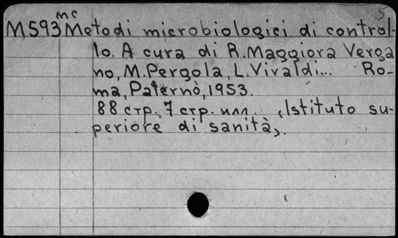 5
mc
M593 Metodi microbiologici di control-
lo. A cura di R. Maggiora Verga
no, M. Pergola, L. Vivaldi... Ro-
ma, Paternò, 1953.
88 стр., 7 стр. илл. (Istituto su-
periore di sanità).